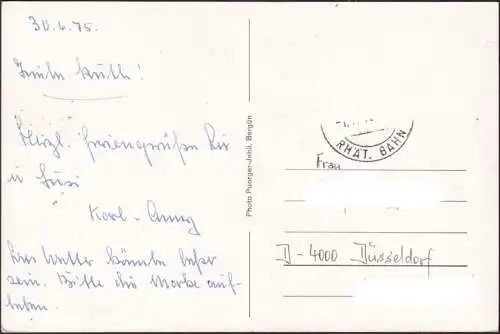 30.6.75.
Liebe Ruth!
Herzl. Feriengrüße Dir
u Susi
Karl-Anny
Das Wetter könnte besser
sein. Bitte die Marke auf-
heben.
Photo Puorger-Jehli, Bergün
RHÄT. BAHN
Frau
D-4000 Düsseldorf